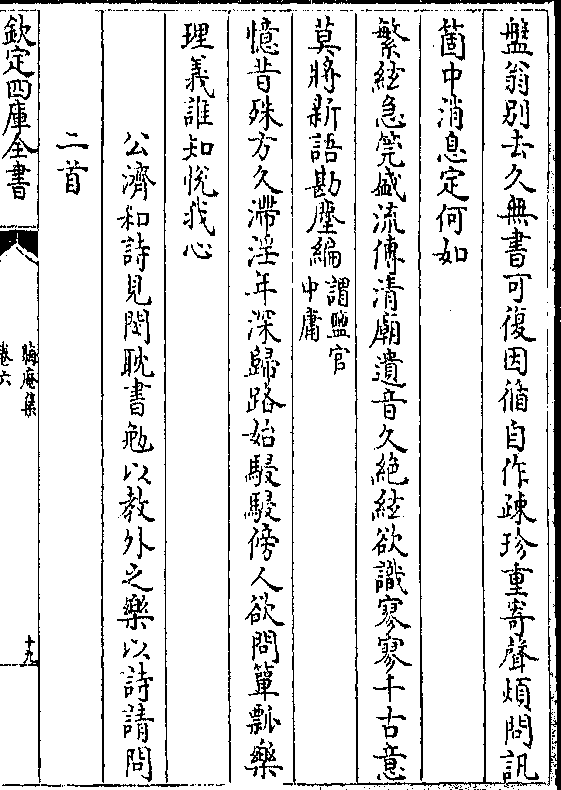 盤翁别去久無書可復因循自作疎珍重寄聲煩問訊
箇中消息定何如
繁絃急筦盛流傳清廟遺音久絶絃欲識寥寥千古意
莫將新語勘塵編謂鹽官
中庸
憶昔殊方久滯淫年深歸路始駸駸傍人欲問簞瓢樂
理義誰知悦我心
公濟和詩見閔耽書勉以教外之樂以詩請問
二首
欽定四庫全書
晦庵集
卷六
十九